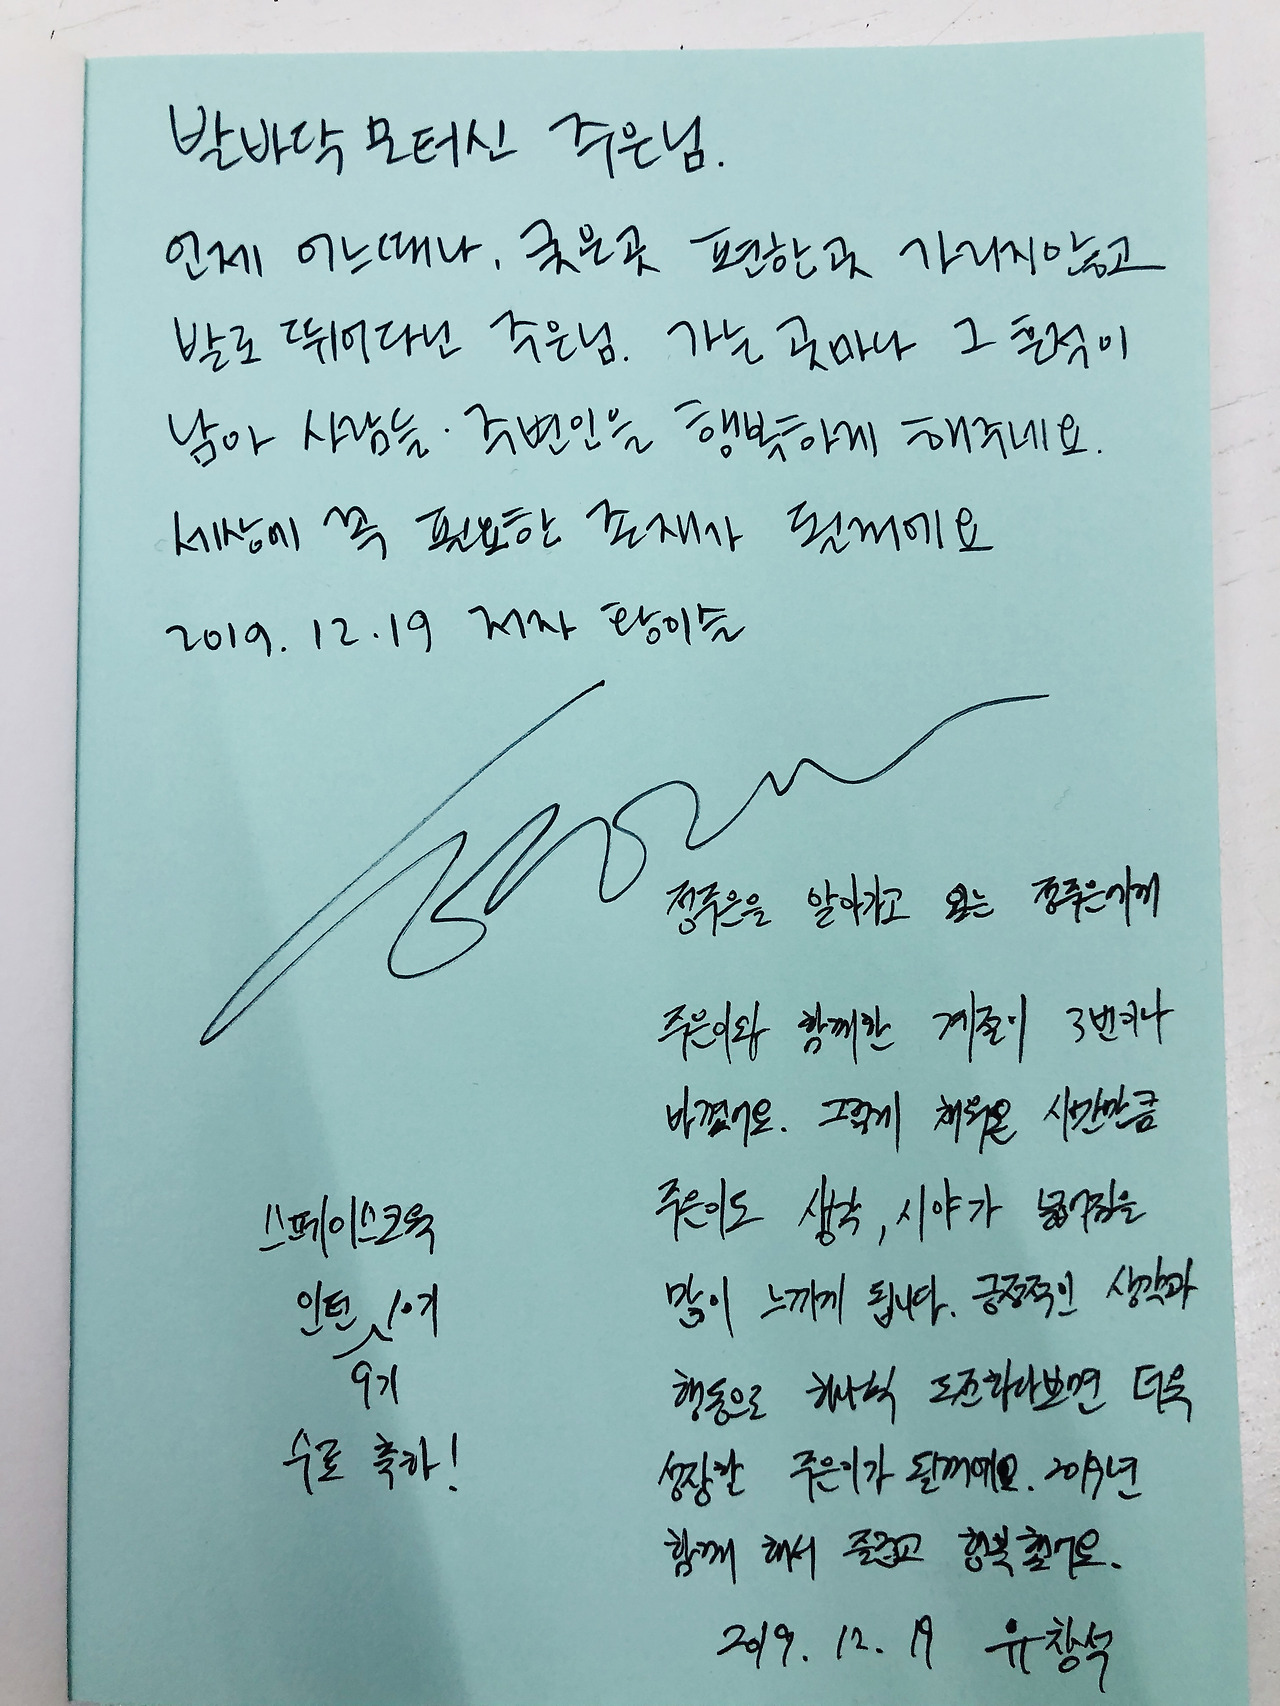 발바닥 모터신 주은님.
언제 어느때나, 궂은곳 편한곳 가리지않고
발로 뛰어다닌 주은님. 가는 곳마다 그 흔적이
남아 사람들·주변인을 행복하게 해주네요.
세상에 꼭 필요한 존재가 될꺼에요
2019. 12. 19 저자 황이슬
정주은을 알아가고 있는 정주은에게
주은이와 함께한 계절이 3번이나
바꼈어요. 그렇게 채워온 시간만큼
주은이도 생각, 시야가 넓어짐을
많이 느끼게 됩니다. 긍정적인 생각과
행동으로 하나씩 도전하다보면 더욱
성장한 주은이가 될꺼에요. 2019년
함께 해서 즐겁고 행복했어요.
2019. 12. 19 유창석
스페이스코웍
인턴 10기
9기
수료 축하!